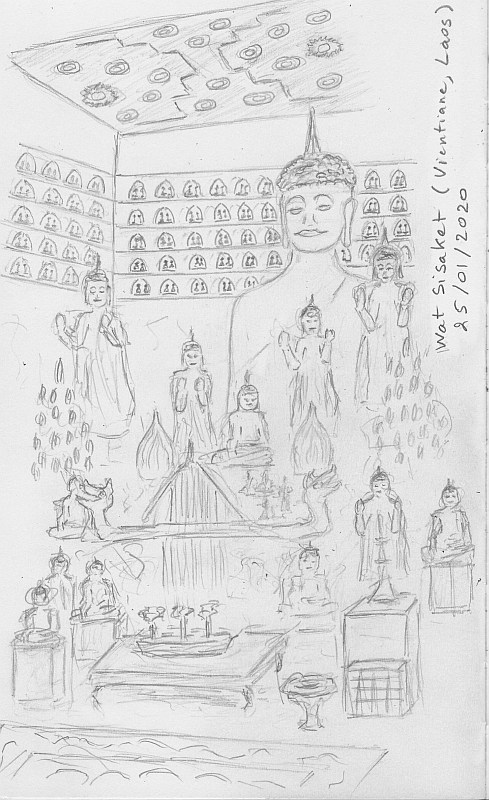 Wat Sisaket (Vientiane, Laos)
25/01/2020